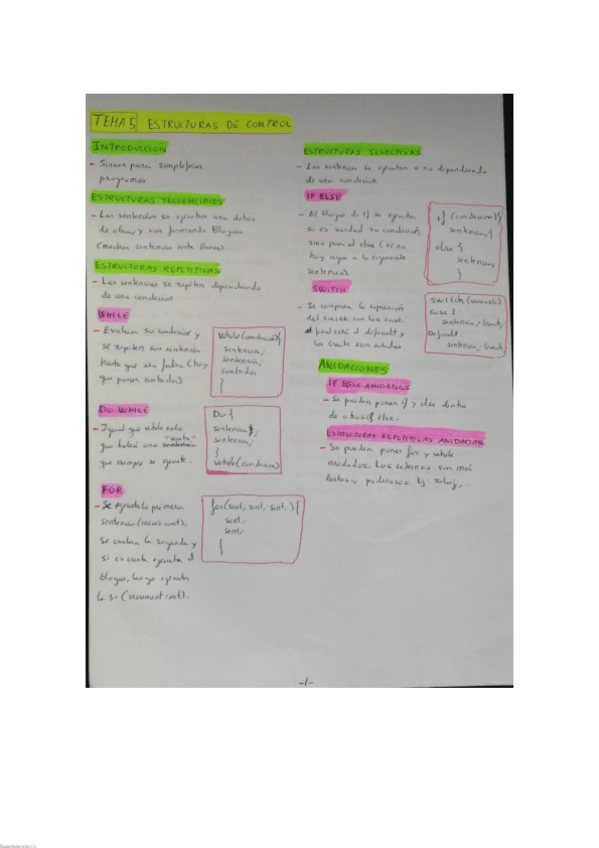 TEMA 5 ESTRUCTURAS DE CONTROL
INTRODUCCIÓN
- Sirven para simplificar
programas
ESTRUCTURAS SECUENCIALES
- Las sentencias se ejecutan una detrás
de otra, y van formando Bloques
(muchas sentencias entre llaves).
ESTRUCTURAS REPETITIVAS
- Las sentencias se repiten dependiendo
de una condición.
WHILE
- Evalúan su condición y
se repiten sus sentencias
hasta que sea falsa (hay
que poner contador)
while(condición){
sentencia;
sentencia;
contador
}
DO WHILE
- Igual que while solo
que habrá una
que siempre se ejecute.
Do {
sentencia;
sentencia;
}
while(condición)
FOR
- Se ejecuta la primera
sentencia (inicio cont),
se evalúa la segunda y
si es cierta ejecuta el
Bloque, luego ejecuta
la 3ª (increment cont).
for(sent; sent; sent;){
sent;
sent;
}
ESTRUCTURAS SELECTIVAS
- Las sentencias se ejecutan o no dependiendo
de una condición
IF ELSE
- El bloque de if se ejecuta
si es verdad su condición,
sino pasa al else (si no
hay sigue a la siguiente
sentencia).
if (condición){
sentencia;}
else {
sentencia;
}
SWITCH
- Se compara la expresión
del switch con los case.
Al final está el default y
los break son salidas.
switch(variable)
case 1
sentencia; break;
Default:
sentencia; break
ANIDACIONES
IF ELSE ANIDADOS
- Se pueden poner if y else dentro
de otros if else.
ESTRUCTURAS REPETITIVAS ANIDADAS
- Se pueden poner for y while
anidados. Los externos son más
lentos, Ej: reloj, ...
-1-